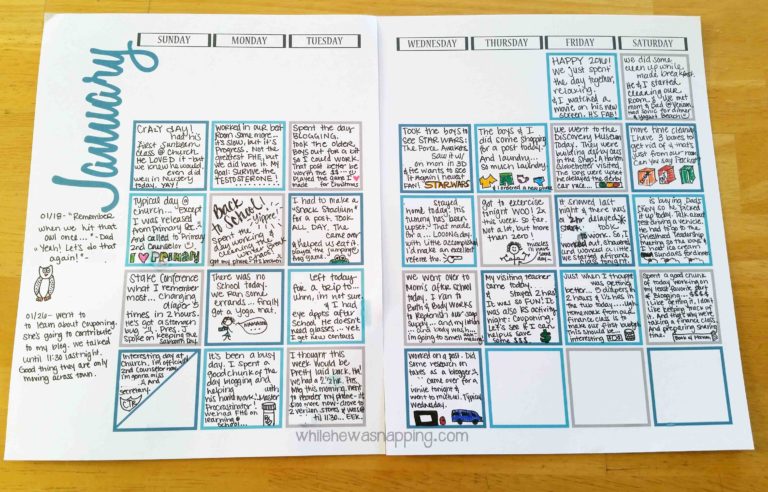 January
SUNDAY MONDAY TUESDAY
WEDNESDAY THURSDAY FRIDAY SATURDAY
HAPPY 2016!
We just spent
the day together,
relaxing.
& I watched a
movie on his new
screen. It's FAB!
we did some
clean up while
made breakfast.
He & I started
cleaning our
Room.
Crazy day!
had his
first sunbeam
class @ church.
HE LOVED it - but
we knew he would.
even did
well in Nursery
today, YAY!
worked in our beat
Room some more...
it's slow, but it's
Progress. Not the
greatest FHE, but
we did have it. My
goal: Survive the
TESTOSTERONE!
Spent the day
BLOGGING.
took the olders
Boys out for a bit
so I could work.
That post better
be worth the $$
played the game I
made for Christmas
Took the boys to
see STAR WARS:
The Force Awakens.
Saw it w/
on mon in 3D
& He wants to see
it again! newest
fan! STAR WARS
The boys & I
did some shopping
for a post today!
And laundry...
so much laundry.
I ordered a new phone
we went to the
Discovery Museum
today. They were
building derby cars
in the Shop! A Harlem
Globetrotter visited.
The boys were upset
he delayed the derby
car race...
more tree cleaning.
I have 3 boxes to
get rid of & that's
just from our room.
Can you say Packrat
01/18 - "Remember
when we hit that
owl one..." - Dad
"Yeah! Let's do that
again!" -
Typical day @
church... Except
I was released
from Primary Sec.
And called to Primary
2nd Counselor
I ♥ PRIMARY
Back to School!
yippee!
Spent the
day working &
cleaning the
got my phone
I had to make a
"Snack Stadium"
for a post. TOOK
ALL DAY. The
came over
& helped us eat it.
played the
frog game.
stayed
home today! His
tummy has been
upset. That made for
a... LOOONG day.
with little accomplished.
I'd make an excellent
referee tho.
got to exercise
tonight WOO! 2x
this week so far.
Not a lot, but more
than zero!
muscles
it snowed last
night & there was
2hr delayed.
took
to
work. So I
worked out, showered
we started a finance
class tonight.
is buying Dad's
He picked
it up today. Talk about
test driving a vehicle.
He had to go to the
Priesthood Leadership
meeting so the boys &
I had ice cream
Sundaes for dinner
Stake Conference
what I remember
most... Changing
diaper 5
times in 2 hours.
He's got a stomach
bug. Pres.
spoke on Keeping the
Sabbath Day
There was no
school today.
We ran some
errands... finally
got a yoga mat.
left today
for a trip to...
Uhm, I'm not sure
& I had
eye appts after
school. He doesn't
need glasses... yet
I get new contacts
we went over to
Mom's after school
today. I ran to
Bath & Body works
to Replenish our soap
Supply... and my lotion
and body wash...
I'm going to smell amazing
My visiting teacher
came today.
Stayed 2 hours
IT was so FUN! it
was also RS activity
night: Couponing.
Let's see if I can
save some $$$
Just when I thought
was getting
better... 5 diapers in
2 hours & 1 1/2 hrs in
the tub today...
homework from our
finance class is to
make out first budget
This should be
interesting
Spent a good chunk
of today working on
my least favorite part
of Blogging... $$$
I like getting it, I don't
like keeping track of
it. And since we're
taking a finance class
and preparing sharing
time.
01/26 - went to
to learn about couponing.
She's going to contribute
to my blog. we talked
until 11:30 last night.
Good thing they are only
moving across town.
Interesting day at
Church. I'm officially
2nd Counselor now.
I'm gonna miss
And
Secretary.
It's been a busy
day. I spent a
good chunk of the
day blogging and
helping with
his homework! Master
Procrastinator!
we had FHE on
learning &
School...
I thought this
week would be
Pretty laid back. HA!
we had a 2 2hr. Pres.
mtg this morning. went
to reorder my phone - it's
$100 more now - drove to
2 verizon stores & was @
til 11:30... EEK.
worked on a post. Did
some research on
taxes as a blogger &
came over for
a while tonight &
went to mutual. Typical
Wednesday.
whilehewasnapping.com